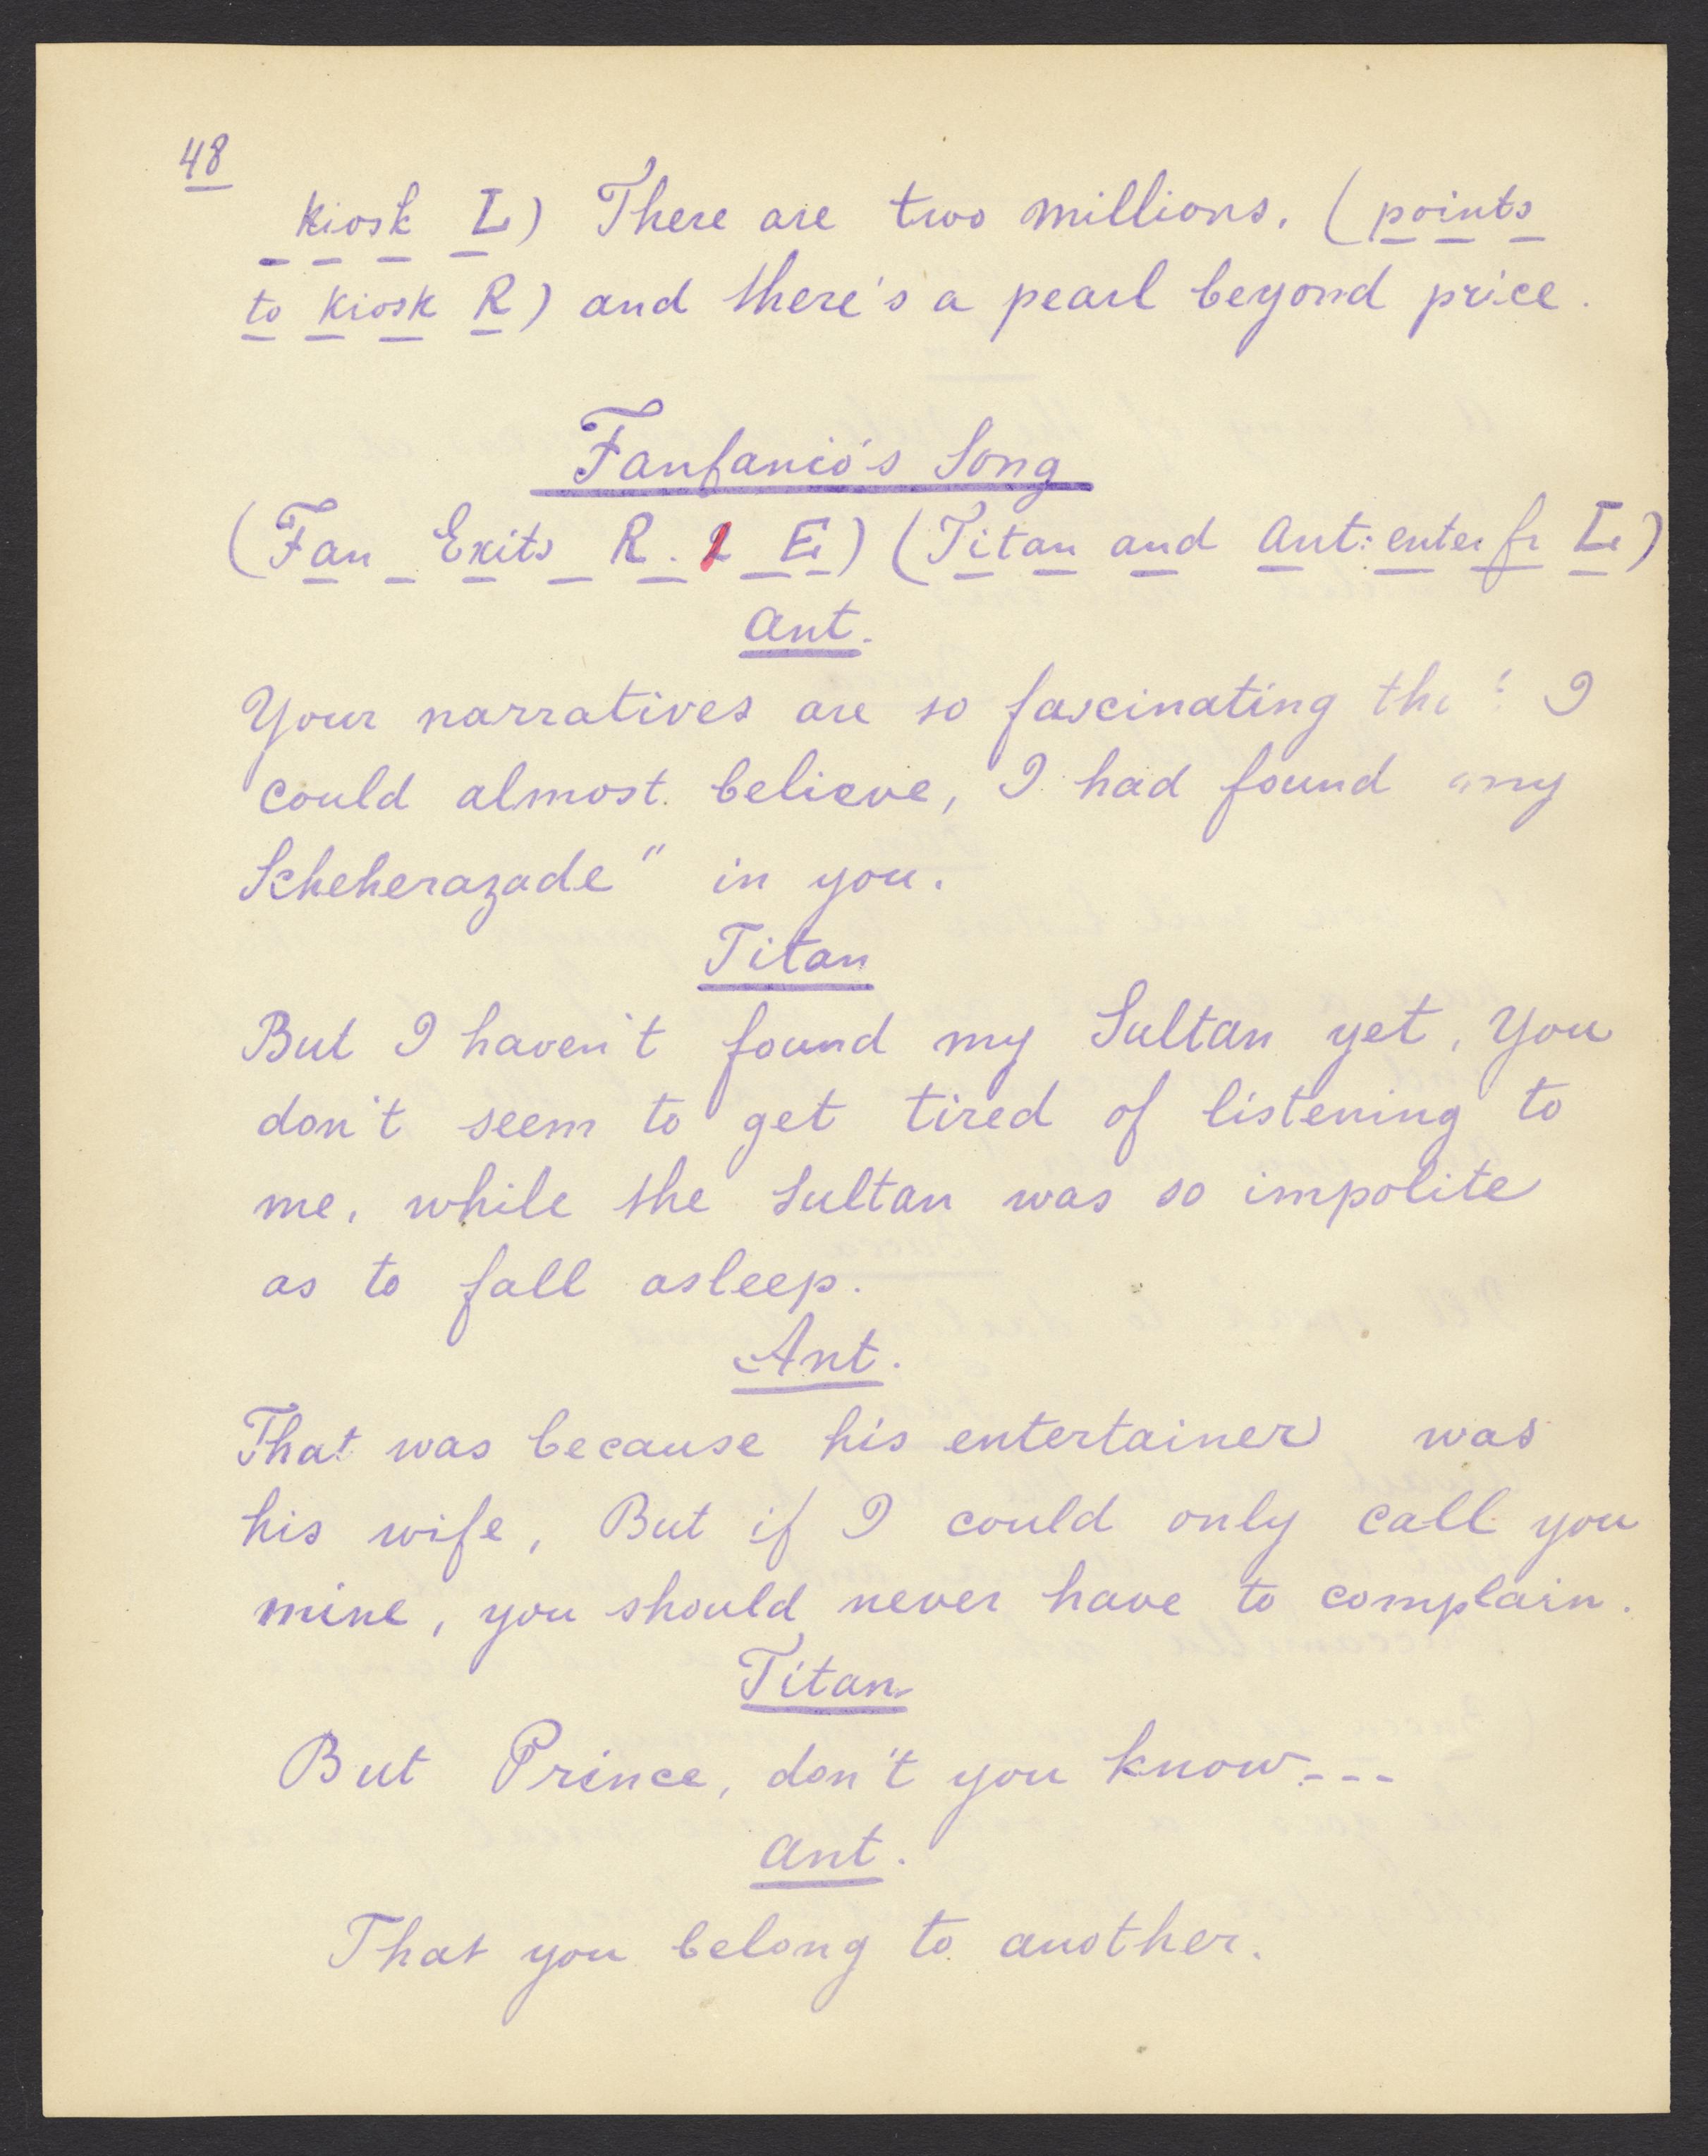 48
Kiosk L) There are two millions. (points
to Kiosk R) and there's a pearl beyond price.
Fanfanio's Song
(Fan Exits R. 1 E) (Titan and Ant: enter fr L)
Ant.
Your narratives are so fascinating that I
could almost believe, I had found my
Scheherazade" in you.
Titan
But I haven't found my Sultan yet, You
don't seem to get tired of listening to
me, while the Sultan was so impolite
as to fall asleep.
Ant.
That was because his entertainer was
his wife, But if I could only call you
mine, you should never have to complain.
Titan
But Prince, don't you know---
Ant.
That you belong to another.